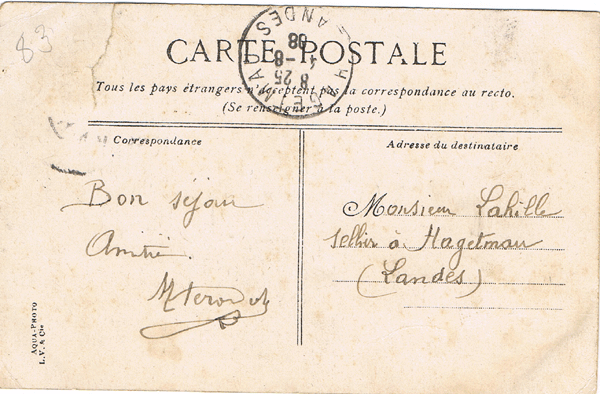 83
CARTE POSTALE
HAGETMAU
LANDES
8 25
4 - 8
08
Tous les pays étrangers n'acceptent pas la correspondance au recto.
(Se renseigner à la poste.)
Correspondance
Adresse du destinataire
Bon séjour
Amitié
Monsieur Lahille
sellier à Hagetmau
(Landes)
AQUA-PHOTO
L. V. & Cie